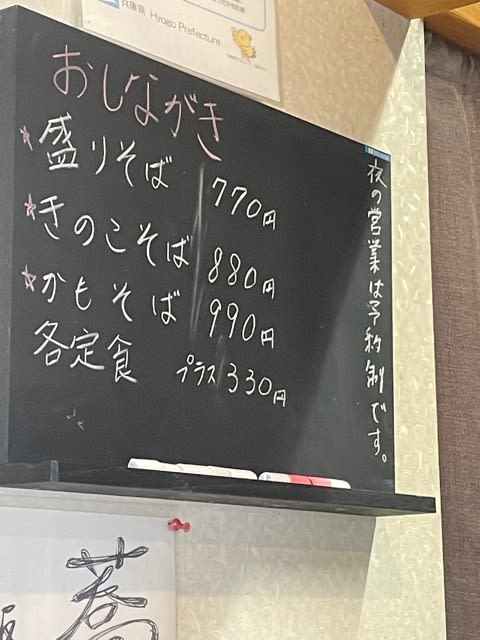 兵庫県 Hyogo Prefecture
おしながき
☆盛りそば 770円
☆きのこそば 880円
☆かもそば 990円
各定食 プラス330円
夜の営業は予約制です。
蕎